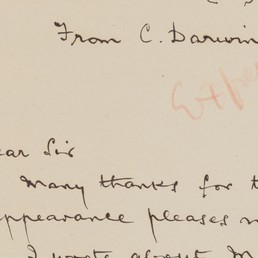 From C. Darwin
ear Sir
Many thanks for t
appearance pleases
I wrote about M